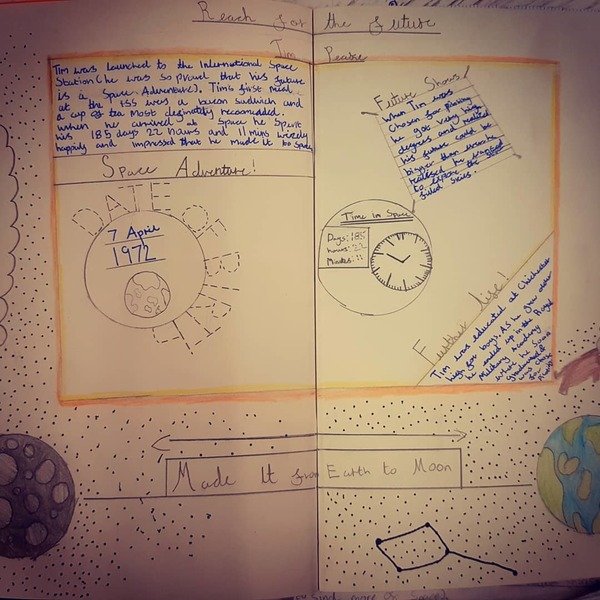 Reach for the future
Tim Peake
Tim was launched to the International Space
Station (he was so proud that his future
is a Space Adventure). Tim's first meal
at the ISS was a bacon sandwich and
a cup of tea most definately recomended.
When he arrived at space he spent
his 185 days 22 hours and 11 mins
happily and impressed that he made it to space
Space Adventure!
DATE OF BIRTH
7 April
1972
Future Shows!
When Tim was
chosen for
he got very high
degrees and realised
his future could be
bigger than
realised he
to explore the star
filled skies.
Time in Space
Days: 185
hours: 22
Minutes: 11
Further life!
Tim was educated at Chichester
high for boys. As he grew older
he ended up in the Royal
Military Academy
where he soon
graduated &
was
for
Made It from Earth to Moon